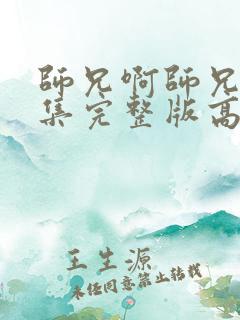 師兄啊師兄
集完整版高
王生源
未经同意禁止转载